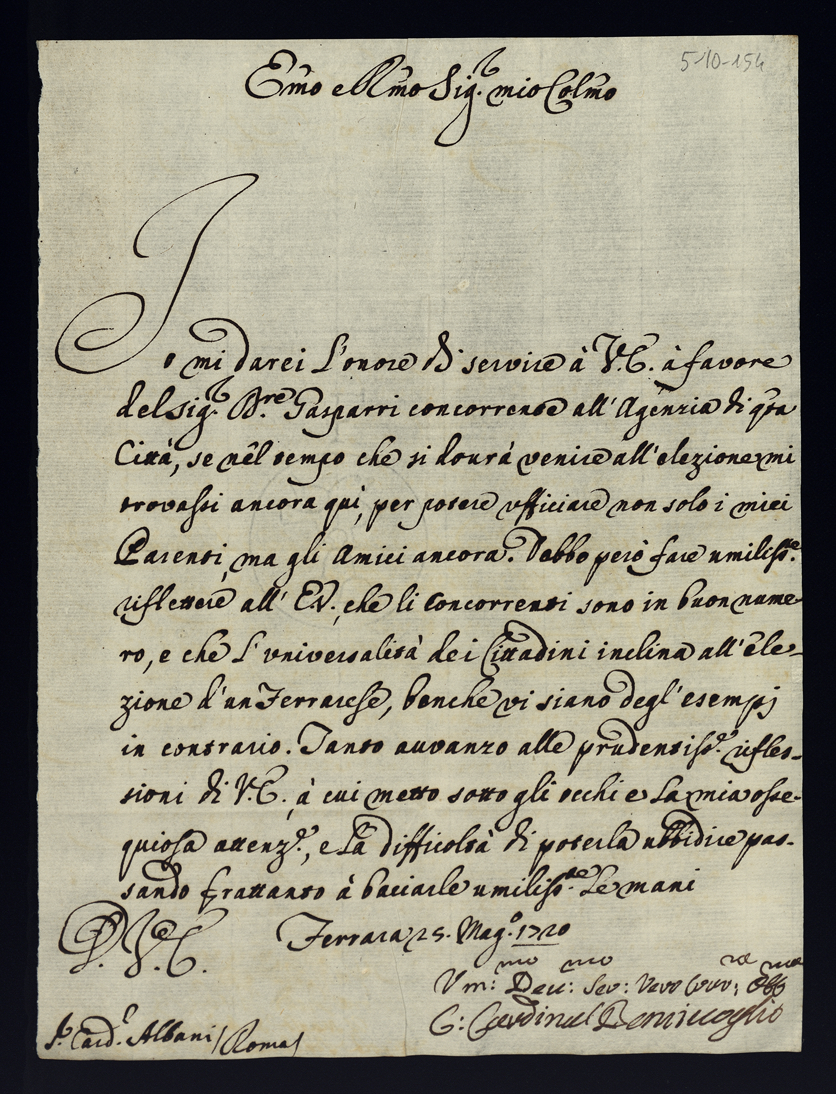 5-10-154
Emo e Rmo Sig.r mio Colmo
Io mi darei l'onore di servire à V.E. à favore
del Sig.r D.re Gasparri concorrente all'Agenzia di qta
Città, se nêl tempo che si dourà venire all'elezione mi
trovassi ancora quì, per potere ufficiare non solo i miei
Parenti, ma gli Amici ancora. Debbo però fare umiliss.e
riflettere all' E.V., che li concorrenti sono in buon nume-
ro, e che l'universalità dei Cittadini inclina all'ele-
zione d'un Ferrarese, benche vi siano degl'esempj
in contrario. Tanto auvanzo alle prudentiss.e rifles-
sioni di V.E., à cui metto sotto gli occhi e la mia osse-
quiosa attenz.e, e la difficoltà di poterla ubbidire pas-
sando frattanto à baciarle umiliss.te le mani
D. V. E. Ferrara 25. Mag.o 1720
Vm:mo Deu:mo Ser: Vero Cour:re Obb:mo
C: Cardinal Bentivoglio
S.r Card.l Albani / Roma /